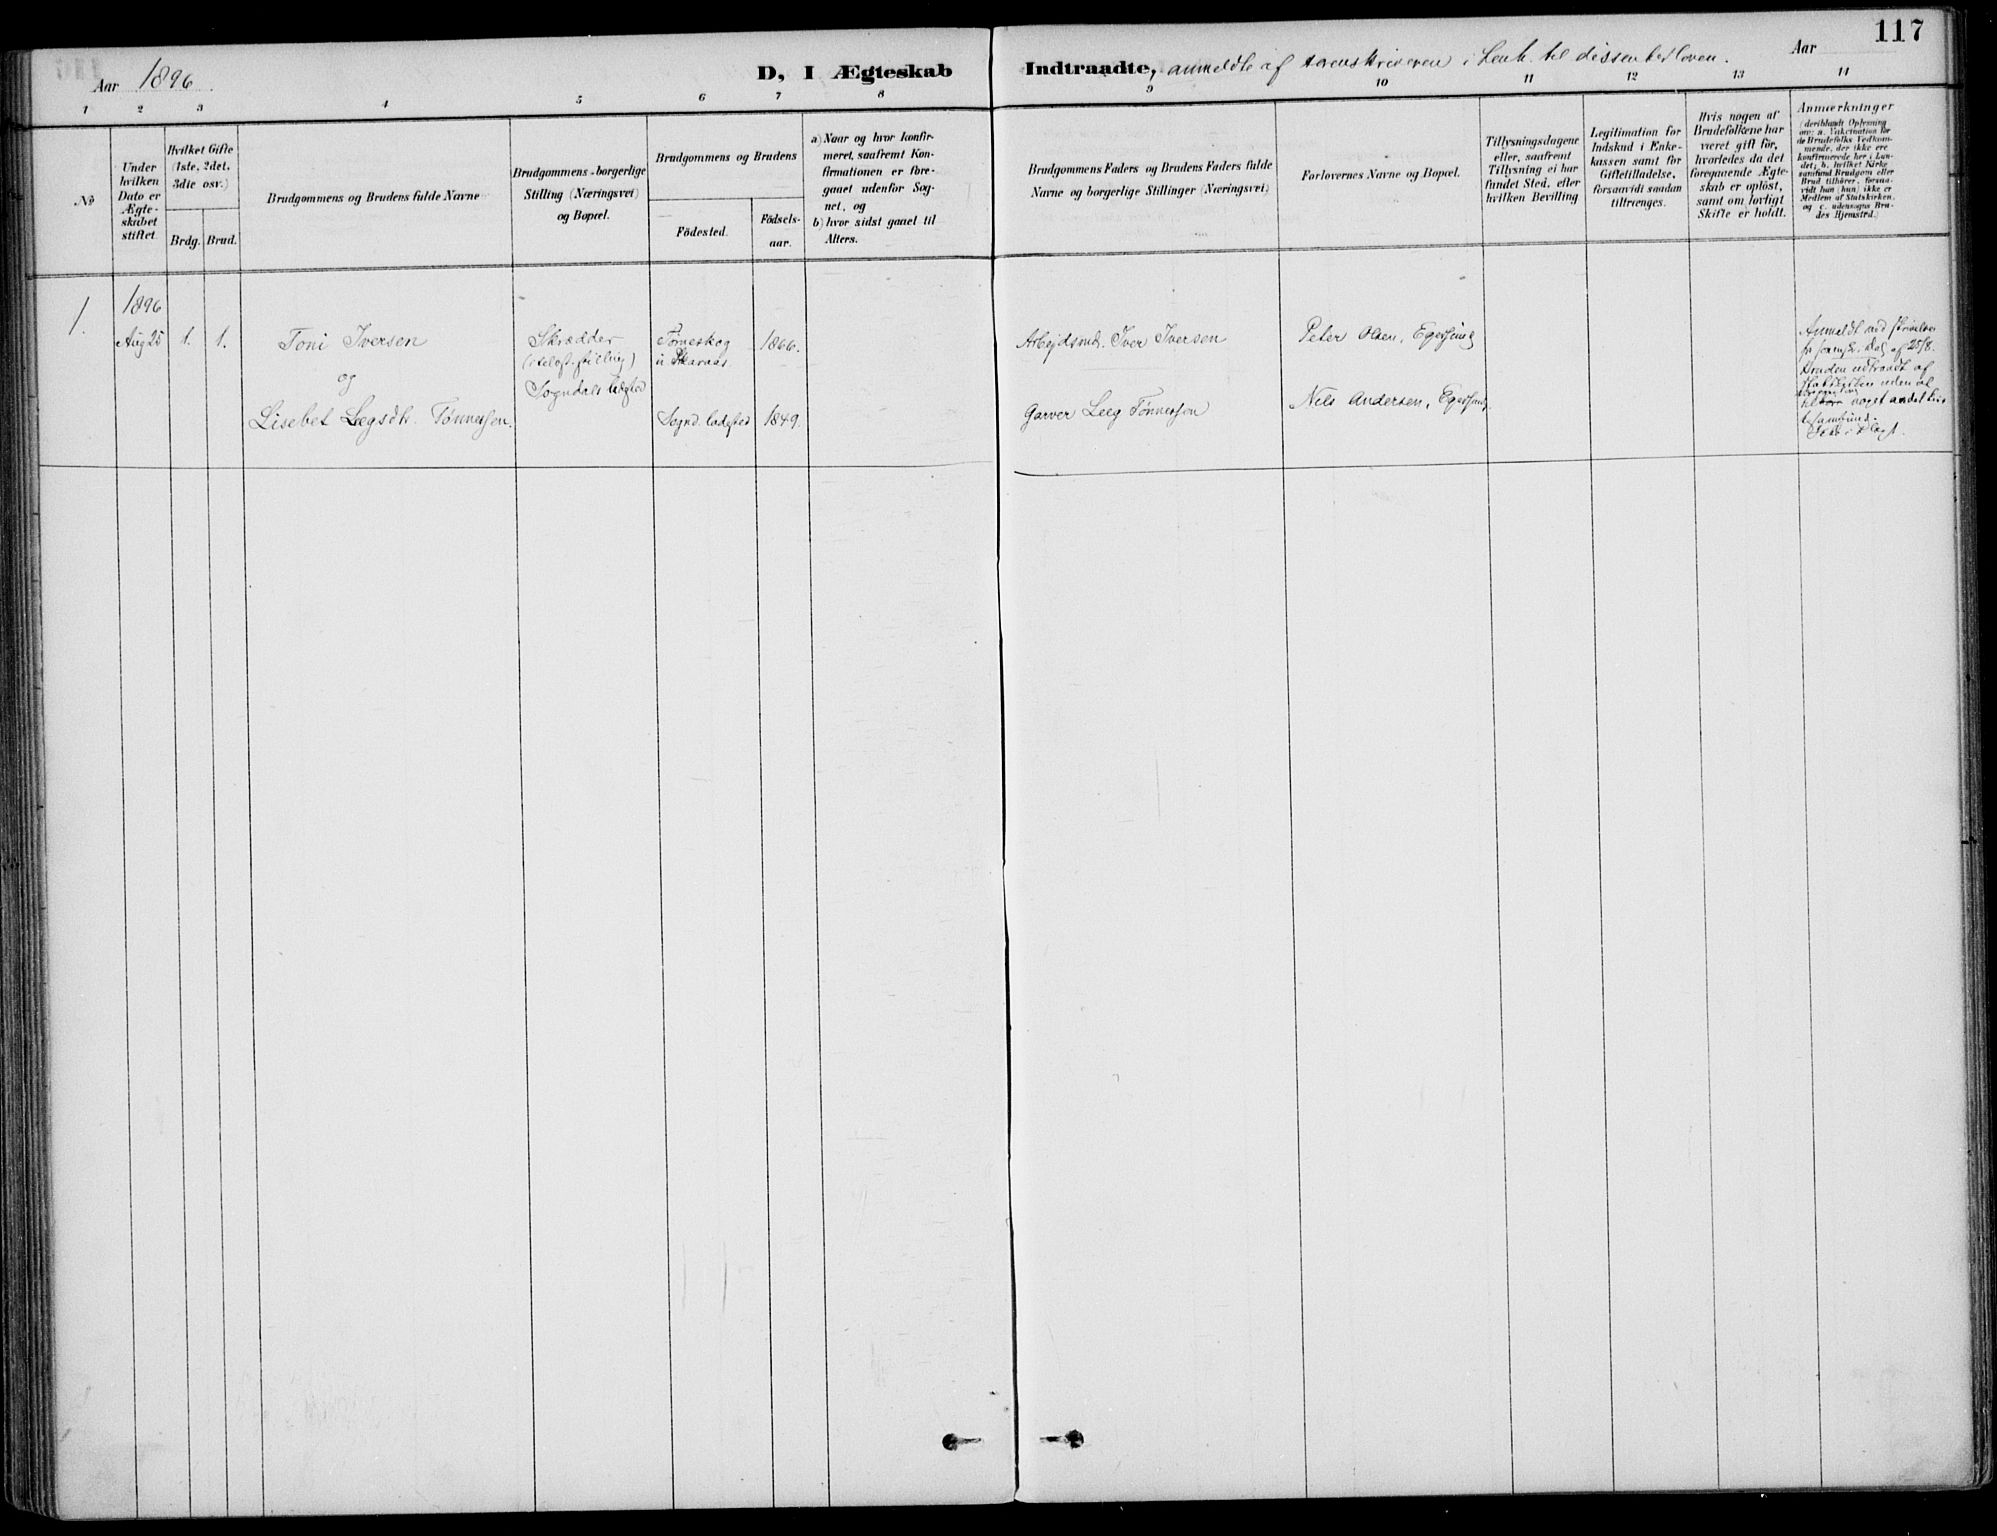 117
Aar 1896.
D, I Ægteskab Indtraadte, anmeldte af sorenskriveren i Henh. til dissenterloven.
Aar
1 2 3 4 5 6 7 8 9 10 11 12 13 14
No
Under hvilken Dato er Ægte-skabet stiftet.
Hvilket Gifte (1ste, 2det, 3die osv.)
Brdg. Brud.
Brudgommens og Brudens fulde Navne
Brudgommens borgerlige Stilling (Næringsvei) og Bopæl.
Brudgommens og Brudens
Födested.
Födsels-aar.
a) Naar og hvor konfir-
meret, saafremt Kon-
firmationen er fore-
gaaet udenfor Sog-
net, og
b) hvor sidst gaaet til
Alters.
Brudgommens Faders og Brudens Faders fulde
Navne og borgerlige Stillinger (Næringsvei)
Forlovernes Navne og Bopæl.
Tillysningsdagene
eller, saafremt
Tillysning ei har
fundet Sted, efter
hvilken Bevilling
Legitimation for
Indskud i Enke-
kassen samt for
Giftetilladelse,
forsaavidt saadan
tiltrænges.
Hvis nogen af
Brudefolkene har
været gift för,
hvorledes da det
foregaaende Ægte-
skab er oplöst,
samt om lovligt
Skifte er holdt.
Anmærkninger
(deriblandt Oplysning
om: a. Vakcination for
de Brudefolks Vedkom-
mende, der ikke ere
konfirmerede her i Lan-
det; b. hvilket Kirke
samfund Brudgom eller
Brud tilhörer, forsaa-
vidt han (hun) ikke er
Medlem af Statskirken,
og c. udensogns Bru-
des Hjemsted.)
1. 1896 Aug 25 1. 1.
Toni Iversen
og
Lisebet Legsdtr. Tönnessen.
Skrædder
Sogndals ladested
Skaraas.
1866.
Sognd. ladested 1849.
Arbejdsmd. Iver Iversen
Garver Leeg Tönnessen
Peter Olsen, Egersund
Nels Andersen, Egersund.
Anmeldt ved skrivelse
af 25/8.
Bruden udtraadt af
Statskirken uden at
noget andet
samfund.